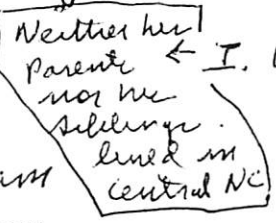 Neither her
parents ← I.
nor her
siblings.
lived in
central NC